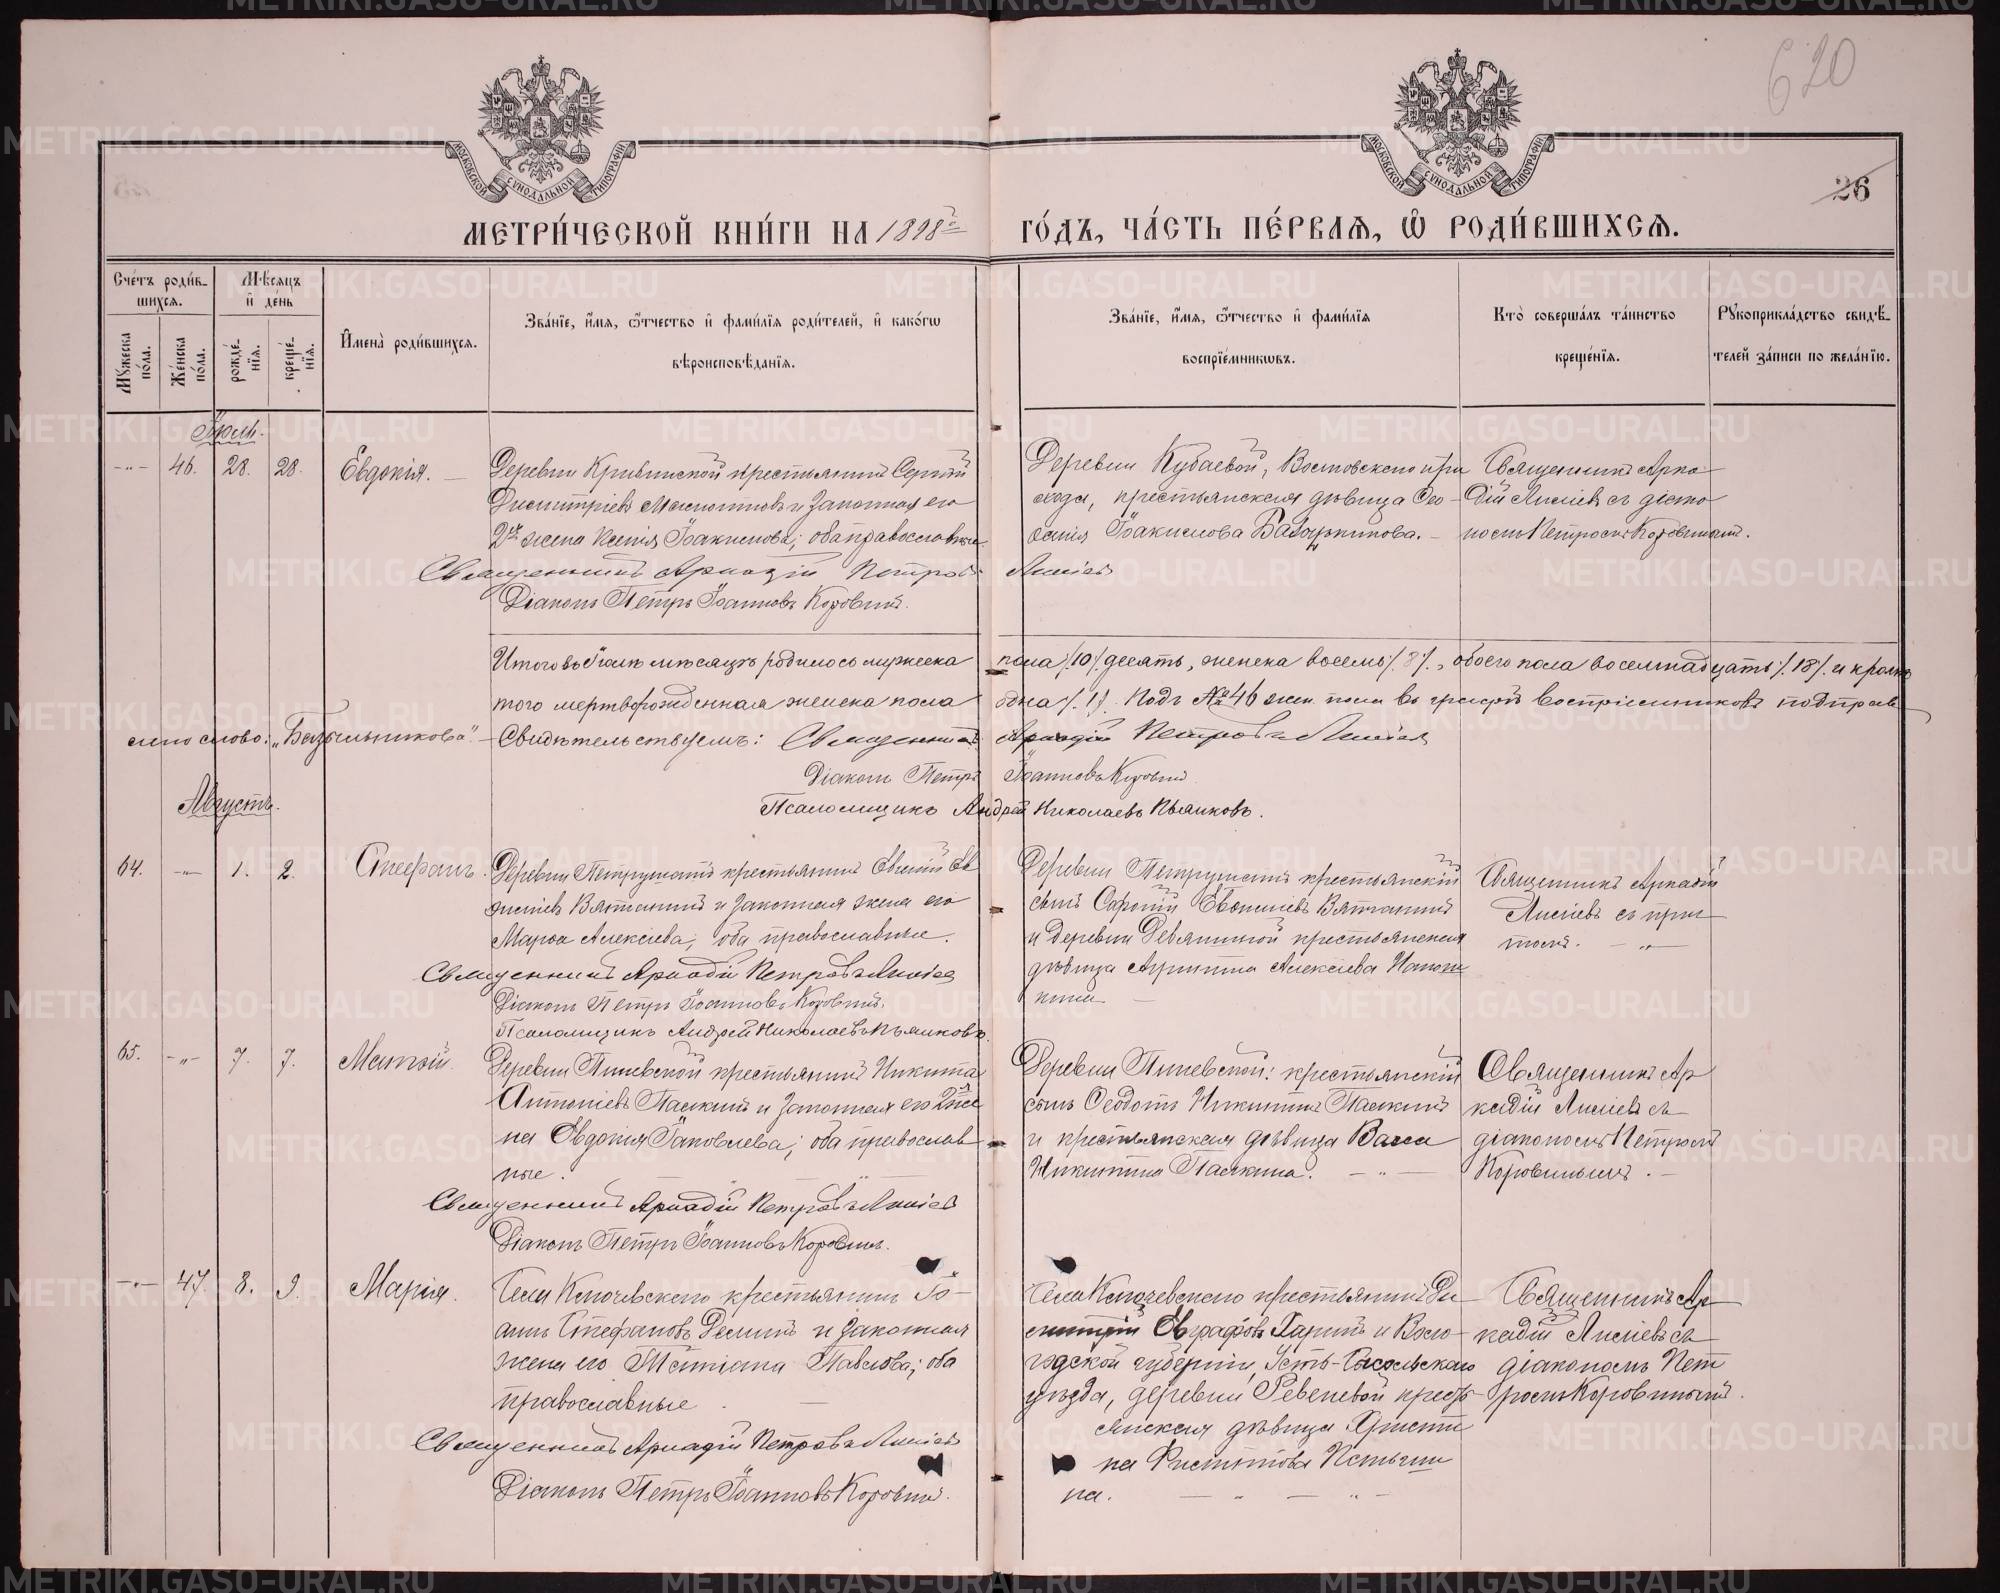 620
МОСКОВСКОЙ СѴНОДАЛЬНОЙ ТИПОГРАФІИ
МОСКОВСКОЙ СѴНОДАЛЬНОЙ ТИПОГРАФІИ
26
МЕТРИ́ЧЕСКОЙ КНИ́ГИ НА 1898й
ГО́ДЪ, ЧА́СТЬ ПЕ́РВАѦ, Ѡ҆ РОДИ́ВШИХСѦ.
Сче́тъ роди́в-
шихсѧ.
Мѣ́сѧцъ
и҆ де́нь
Мꙋ́жеска по́ла.
Же́нска по́ла.
рожде́нїѧ.
креще́нїѧ.
И҆мена̀ роди́вшихсѧ.
Зва́нїе, и҆́мѧ, ѻ҆́тчество и҆ фами́лїѧ роди́телей, и҆ како́гѡ
вѣроисповѣ́данїѧ.
Зва́нїе, и҆́мѧ, ѻ҆́тчество и҆ фами́лїѧ
воспрїе́мникѡвъ.
Кто̀ соверша́лъ та́инство
креще́нїѧ.
Рꙋкоприкла́дство свидѣ́-
телей за́писи по жела́нїю.
Іюль.
-"- 46. 28. 28. Евдокія. Деревни Кривинской крестьянинъ Сергій
Димитріевъ и законная его
2я жена Ксенія Іоакимова; оба православные
Священникъ Аркадій Петровъ Лисіевъ
Діаконъ Петръ Іоанновъ Коровинъ.
Деревни Кубаевой, прихода, крестьянская дѣвица Ѳео-
Іоакимова Базарникова.
Священникъ Арка-
дій Лисіевъ съ діако-
номъ Петромъ Коровинымъ.
Итого въ Іюлѣ мѣсяцѣ родилось мужеска пола /.10/. десять, женска восемь /.8/., обоего пола восемнадцать /.18/. и кромѣ
того мертворожденная женска пола одна /.1/. Подъ №46 жен. пола въ графѣ воспріемниковъ подправ-
лено слово: „Базыльникова". Свидѣтельствуемъ: Священникъ Аркадій Петровъ Лисіевъ
Діаконъ Петръ Іоанновъ Коровинъ
Псаломщикъ Андрей Николаевъ Пьянковъ.
Августъ.
64. -"- 1. 2. Стефанъ. Деревни крестьянинъ Евгеній Ев-
и законная жена его
Марѳа Алексіева; оба православные.
Священникъ Аркадій Петровъ Лисіевъ
Діаконъ Петръ Іоанновъ Коровинъ.
Псаломщикъ Андрей Николаевъ Пьянковъ.
Деревни крестьянскій
сынъ
и деревни Девяткиной крестьянская
дѣвица Агриппина Алексіева
Священникъ Аркадій
Лисіевъ съ прич-
томъ. -"-
65. -"- 7. 7. Матѳій. Деревни крестьянинъ Никита
Антоніевъ Паткинъ и законная его 2я же-
на Евдокія Іаковлева; оба православ-
ные.
Священникъ Аркадій Петровъ Лисіевъ
Діаконъ Петръ Іоанновъ Коровинъ.
Деревни крестьянскій
сынъ Ѳеодотъ Никитинъ Паткинъ
и крестьянская дѣвица Васса
Никитина Паткина. -"-
Священникъ Ар-
кадій Лисіевъ съ
діакономъ Петромъ
Коровинымъ.
-"- 47. 8. 9. Марія. Села Ключевскаго крестьянинъ Іо-
аннъ Стефановъ и законная
жена его Татіана Павлова; оба
православные
Священникъ Аркадій Петровъ Лисіевъ
Діаконъ Петръ Іоанновъ Коровинъ.
Села Ключевскаго крестьянинъ Ди-
митрій Евграфовъ и Воло-
годской губерніи, Усть-Сысольскаго
уѣзда, деревни крестьянская дѣвица Христи-
на
Священникъ Ар-
кадій Лисіевъ съ
діакономъ Пет-
ромъ Коровинымъ.
METRIKI.GASO-URAL.RU